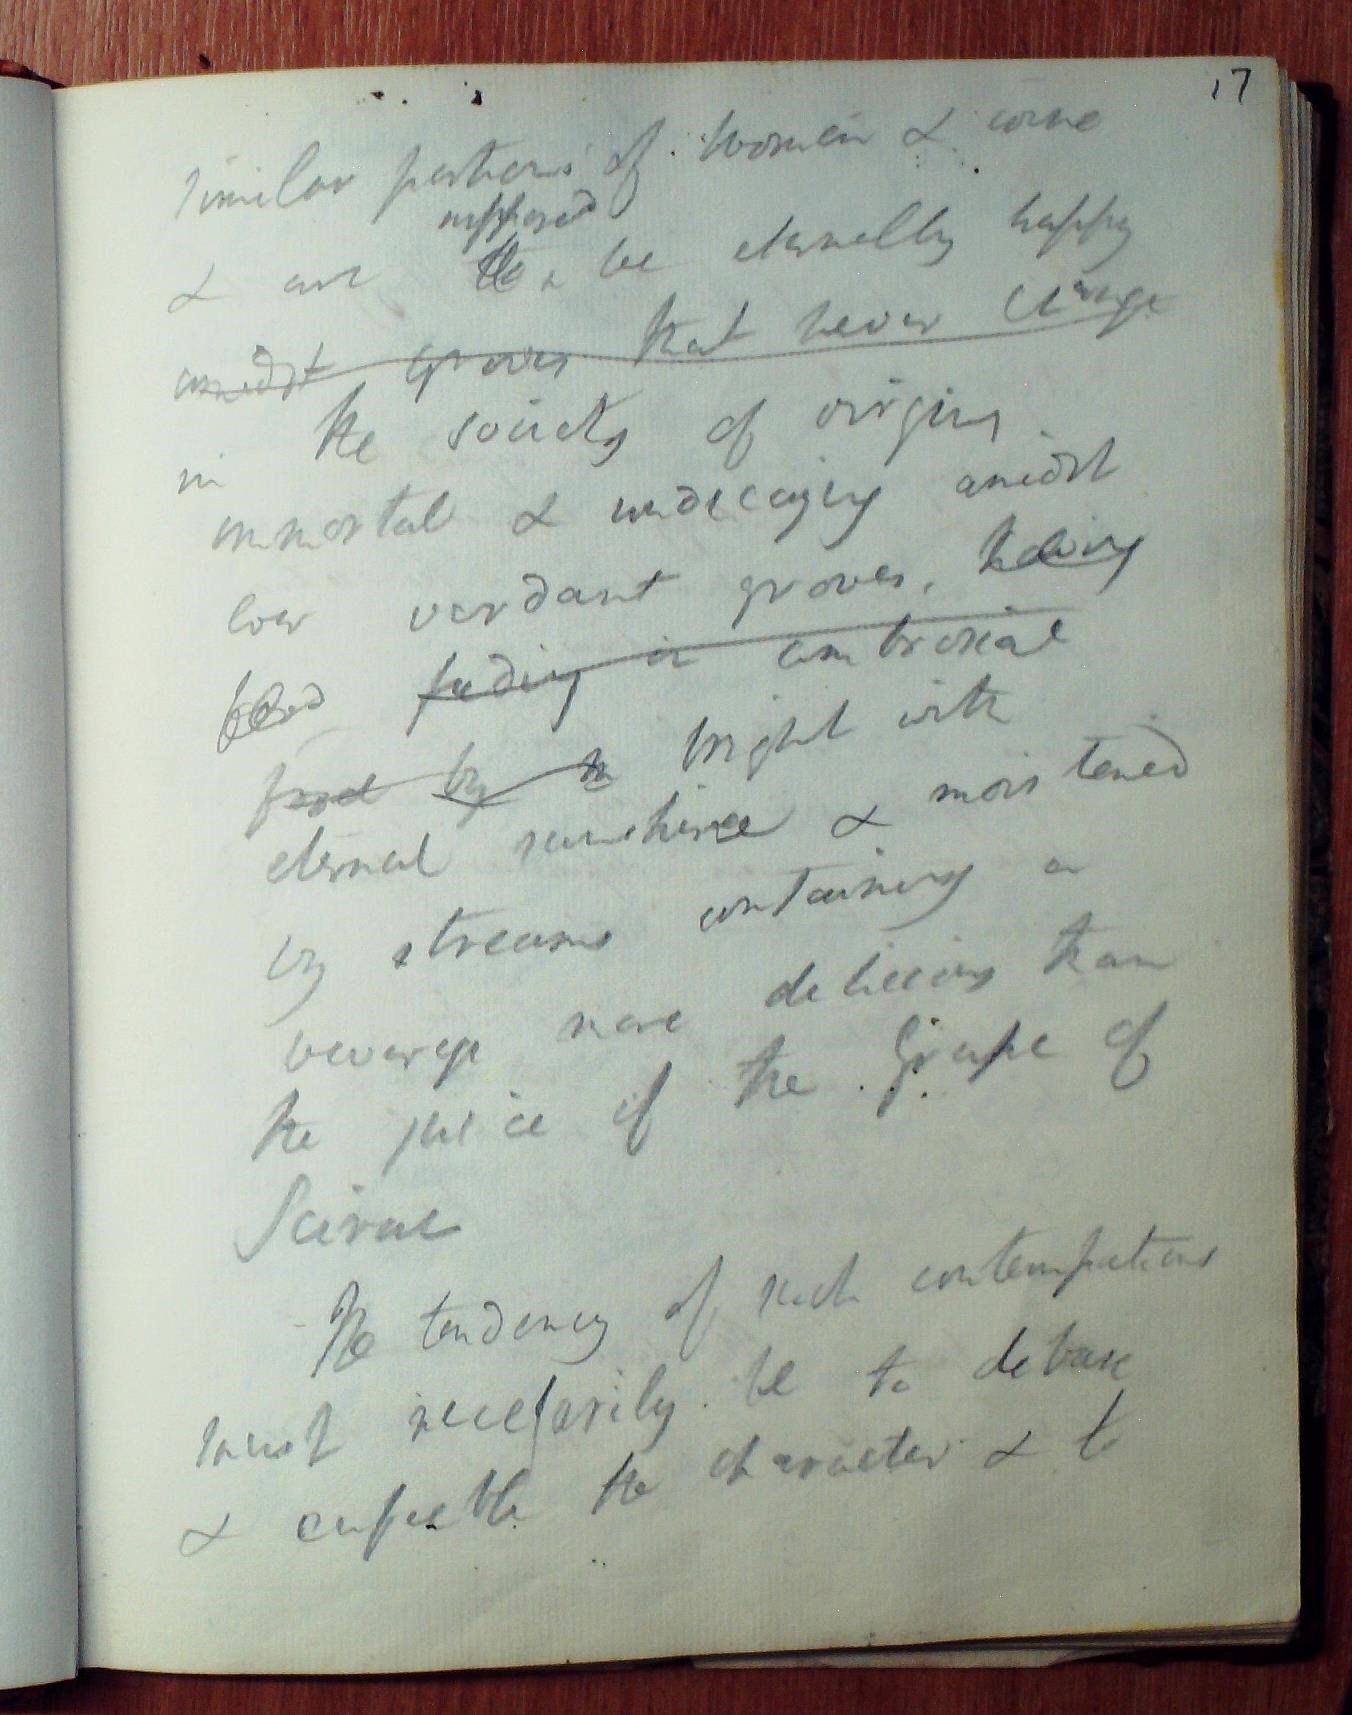 17
similar portions of Women & wine
supposed
& are to be eternally happy
amidst groves that never change
in the society of virgins
immortal & undecaying amidst
low verdant groves,
feeding in ambrosial
by bright with
eternal sunshine & moistened
by streams containing a
beverage more delicious than
the juice of the Grape of
The tendency of such contemplations
must necessarily be to debase
& enfeeble the character & to